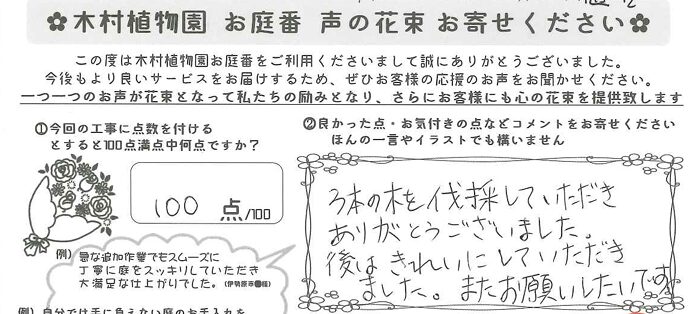 ✿木村植物園 お庭番 声の花束 お寄せください✿
この度は木村植物園お庭番をご利用くださいまして誠にありがとうございました。
今後もより良いサービスをお届けするため、ぜひお客様の応援のお声をお聞かせください。
一つ一つのお声が花束となって私たちの励みとなり、さらにお客様にも心の花束を提供致します
①今回の工事に点数を付ける
とすると100点満点中何点ですか？
100 点/100
例）
急な追加作業でもスムーズに
丁寧に庭をスッキリしていただき
大満足な仕上がりでした。（伊勢原市●様）
例）自分では手に負えない庭のお手入れを
②良かった点・お気付きの点などコメントをお寄せください
ほんの一言やイラストでも構いません
3本の木を伐採していただき
ありがとうございました。
後は きれいにしていただき
ました。またお願いしたいです